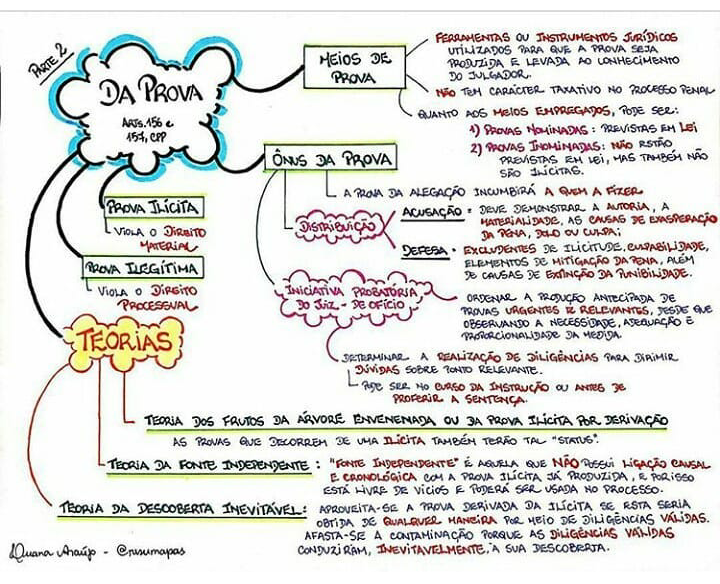 PARTE 2
DA PROVA
ARTS. 156 e
157, CPP
MEIOS DE
PROVA
FERRAMENTAS OU INSTRUMENTOS JURÍDICOS
UTILIZADOS PARA QUE A PROVA SEJA
PRODUZIDA E LEVADA AO CONHECIMENTO
DO JULGADOR.
NÃO TEM CARÁCTER TAXATIVO NO PROCESSO PENAL
QUANTO AOS MEIOS EMPREGADOS, PODE SER:
1) PROVAS NOMINADAS: PREVISTAS EM LEI
2) PROVAS INOMINADAS: NÃO ESTÃO
PREVISTAS EM LEI, MAS TAMBÉM NÃO
SÃO ILÍCITAS.
ÔNUS DA PROVA
A PROVA DA ALEGAÇÃO INCUMBIRÁ A QUEM A FIZER
DISTRIBUIÇÃO
ACUSAÇÃO = DEVE DEMONSTRAR A AUTORIA, A
MATERIALIDADE, AS CAUSAS DE EXASPERAÇÃO
DA PENA, DOLO OU CULPA;
DEFESA = EXCLUDENTES DE ILICITUDE, CULPABILIDADE,
ELEMENTOS DE MITIGAÇÃO DA PENA, ALÉM
DE CAUSAS DE EXTINÇÃO DA PUNIBILIDADE.
INICIATIVA PROBATÓRIA
DO JUIZ - DE OFÍCIO
ORDENAR A PRODUÇÃO ANTECIPADA DE
PROVAS URGENTES E RELEVANTES, DESDE QUE
OBSERVANDO A NECESSIDADE, ADEQUAÇÃO E
PROPORCIONALIDADE DA MEDIDA.
DETERMINAR A REALIZAÇÃO DE DILIGÊNCIAS PARA DIRIMIR
DÚVIDAS SOBRE PONTO RELEVANTE.
PODE SER NO CURSO DA INSTRUÇÃO OU ANTES DE
PROFERIR A SENTENÇA.
PROVA ILÍCITA
VIOLA O DIREITO
MATERIAL
PROVA ILEGÍTIMA
VIOLA O DIREITO
PROCESSUAL
TEORIAS
TEORIA DOS FRUTOS DA ÁRVORE ENVENENADA OU DA PROVA ILÍCITA POR DERIVAÇÃO
AS PROVAS QUE DECORREM DE UMA ILÍCITA TAMBÉM TERÃO TAL "STATUS".
TEORIA DA FONTE INDEPENDENTE: "FONTE INDEPENDENTE" É AQUELA QUE NÃO POSSUI LIGAÇÃO CAUSAL
E CRONOLÓGICA COM A PROVA ILÍCITA JÁ PRODUZIDA, E POR ISSO
ESTÁ LIVRE DE VÍCIOS E PODERÁ SER USADA NO PROCESSO.
TEORIA DA DESCOBERTA INEVITÁVEL: APROVEITA-SE A PROVA DERIVADA DA ILÍCITA SE ESTA SERIA
OBTIDA DE QUALQUER MANEIRA POR MEIO DE DILIGÊNCIAS VÁLIDAS.
AFASTA-SE A CONTAMINAÇÃO PORQUE AS DILIGÊNCIAS VÁLIDAS
CONDUZIRAM, INEVITAVELMENTE, A SUA DESCOBERTA.
Luana Araújo - @resumapas